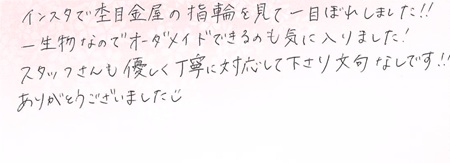 インスタで杢目金屋の指輪を見て一目ぼれしました!!
一生物なのでオーダメイドできるのも気に入りました!
スタッフさんも優しく丁寧に対応して下さり文句なしです!!
ありがとうございました